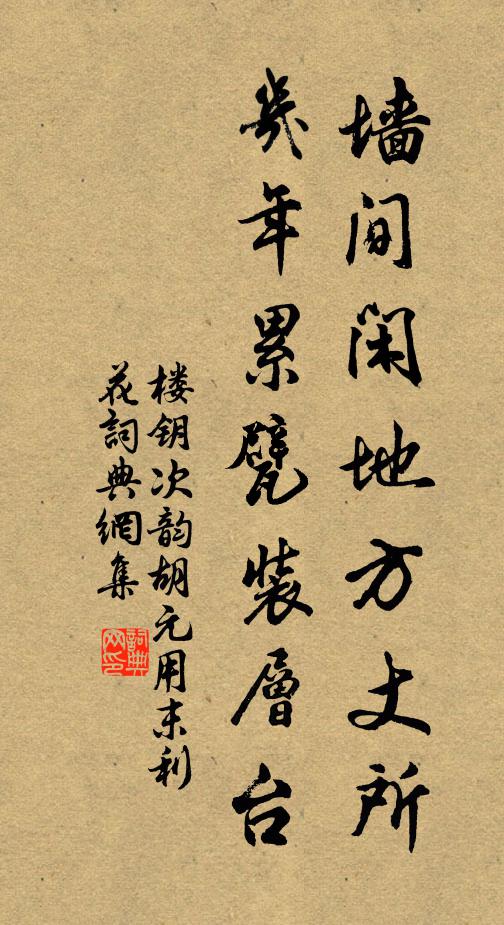 墙间闲地方丈所
几年累甓装层台
楼钥次韵胡元用末利
花詞典網集
詞典网印